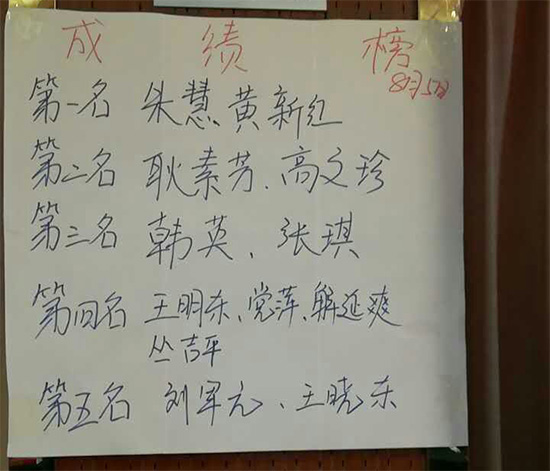 成绩榜
8月5日
第一名 朱慧 黄新红
第二名 耿素芳、高文珍
第三名 韩英、张琪
第四名 王明东、党萍、解延爽
丛吉平
第五名 刘军元、王晓东